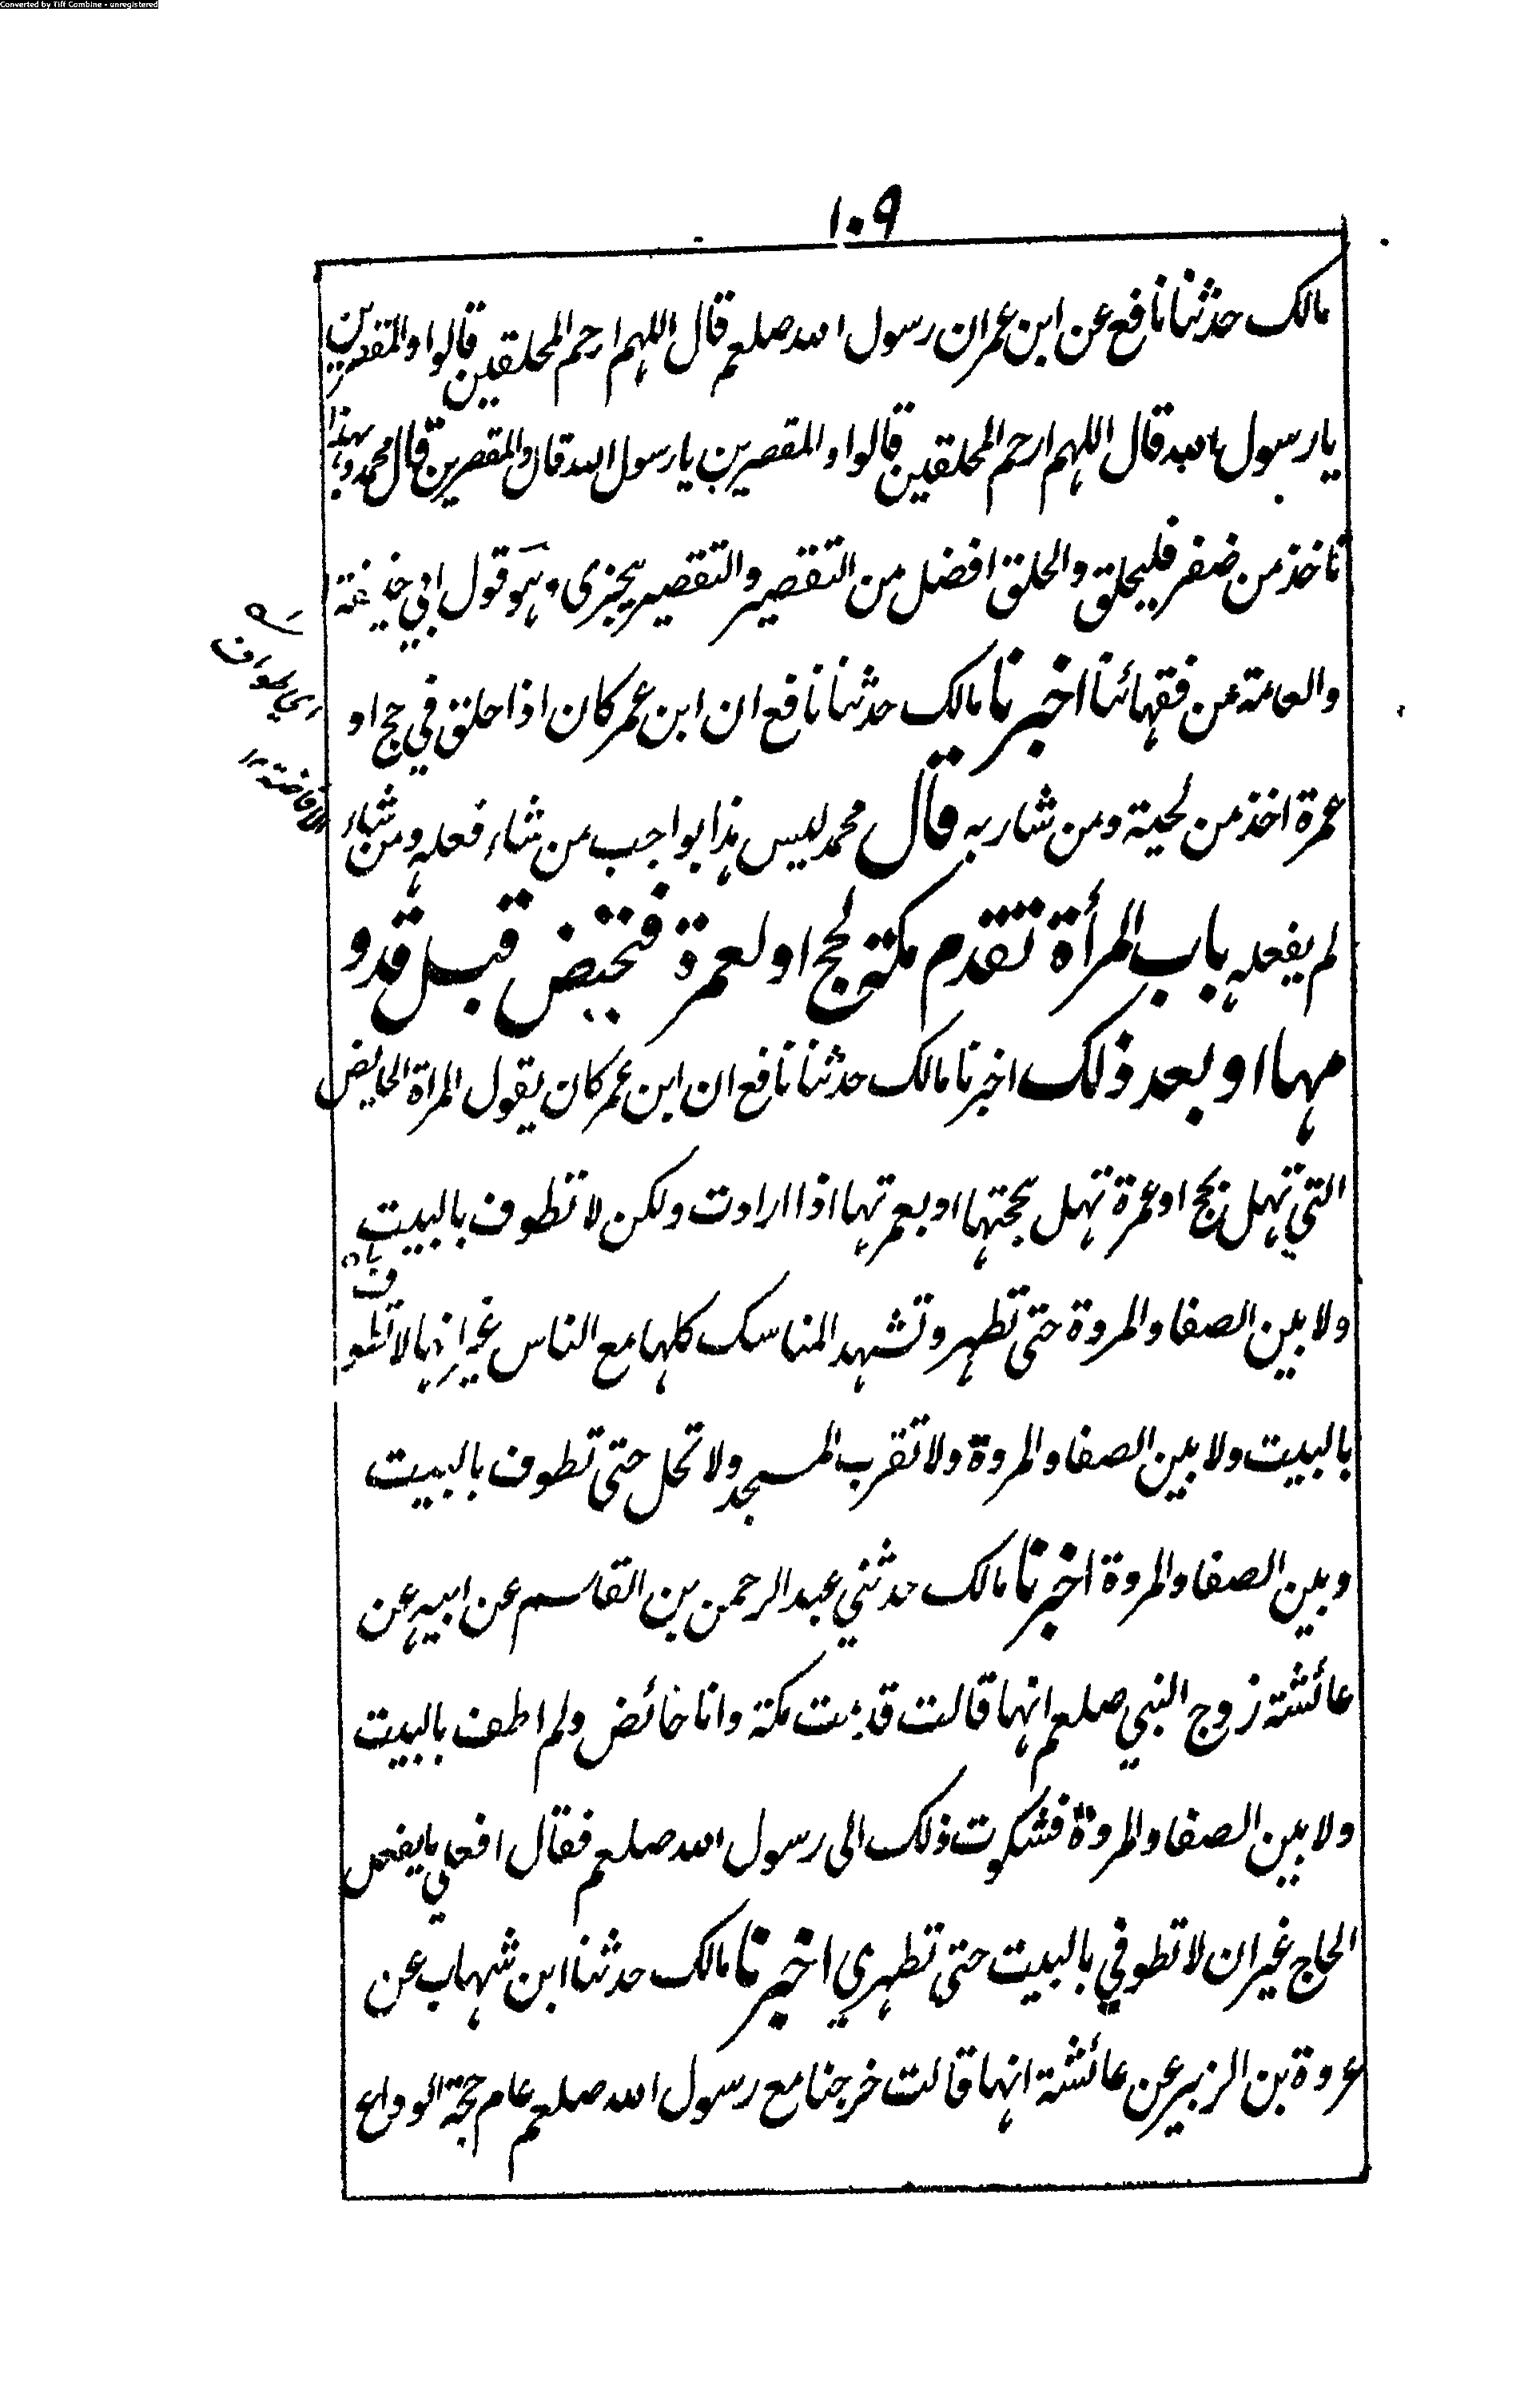 Converted by Tiff Combine - unregistered
١٠٩
مالك حدثنا نافع عن ابن عمر ان رسول الله صلعم قال اللهم ارحم المحلقين قالوا والمقصرين
يا رسول الله قال اللهم ارحم المحلقين قالوا والمقصرين يا رسول الله قال والمقصرين قال محمد وبهذا
ناخذ من ضفر فليحلق والحلق افضل من التقصير والتقصير يجزى وهو قول ابي حنيفة
والعامة من فقهائنا اخبرنا مالك حدثنا نافع ان ابن عمر كان اذا حلق في حج او
عمرة اخذ من لحية ومن شاربه قال محمد ليس هذا بواجب من شاء فعله ومن شاء
لم يفعله باب المرأة تقدم مكة لحج او لعمرة فتحيض قبل قدو
مها او بعد ذلك اخبرنا مالك حدثنا نافع ان ابن عمر كان يقول المراة الحايض
التي تهل بحج او عمرة تهل بحجتها او بعمرتها اذا ارادت ولكن لا تطوف بالبيت
ولا بين الصفا والمروة حتى تطهر وتشهد المناسك كلها مع الناس غير انها لا تطوف
بالبيت ولا بين الصفا والمروة ولا تقرب المسجد ولا تحل حتى تطوف بالبيت
وبين الصفا والمروة اخبرنا مالك حدثني عبد الرحمن بن القاسم عن ابيه عن
عائشة زوج النبي صلعم انها قالت قدمت مكة وانا حائض ولم اطف بالبيت
ولا بين الصفا والمروة فشكوت ذلك الى رسول الله صلعم فقال افعلي ما يفعل
الحاج غير ان لا تطوفي بالبيت حتى تطهري اخبرنا مالك حدثنا ابن شهاب عن
عروة بن الزبير عن عائشة انها قالت خرجنا مع رسول الله صلعم عام حجة الوداع
طواف
الافاضة